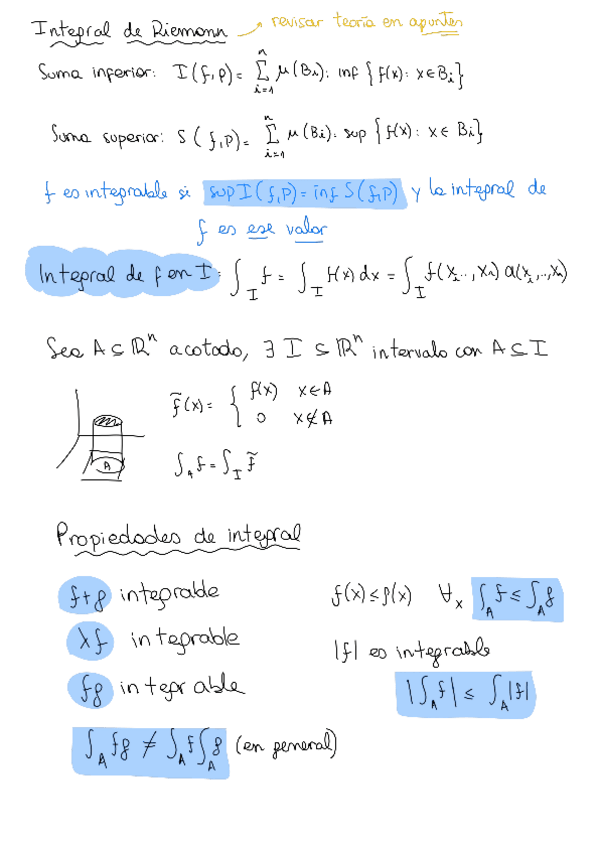 Integral de Riemann → revisar teoría en apuntes
Suma inferior: I(f,P) = ∑_{i=1}^{n} μ(Bi). inf {f(x): x∈Bi}
Suma superior: S(f,P) = ∑_{i=1}^{n} μ(Bi). sup {f(x): x∈ Bi}
f es integrable si sup I(f,P) = inf S(f,P) y la integral de
f es ese valor
Integral de f en I: ∫_I f = ∫_I f(x) dx = ∫_I f(x_i..., x_i) d(x_i,..,x_n)
Sea A ⊆ ℝⁿ acotado, ∃ I ⊆ ℝⁿ intervalo con A ⊆ I
f̃(x) = { f(x) x∈A
0 x∉A
A
∫_A f = ∫_I f̃
Propiedades de integral
f+g integrable
λf integrable
fg integrable
∫_A fg ≠ ∫_A f ∫_A g (en general)
f(x) ≤ g(x) ∀x ∫_A f ≤ ∫_A g
|f| es integrable
|∫_A f| ≤ ∫_A |f|